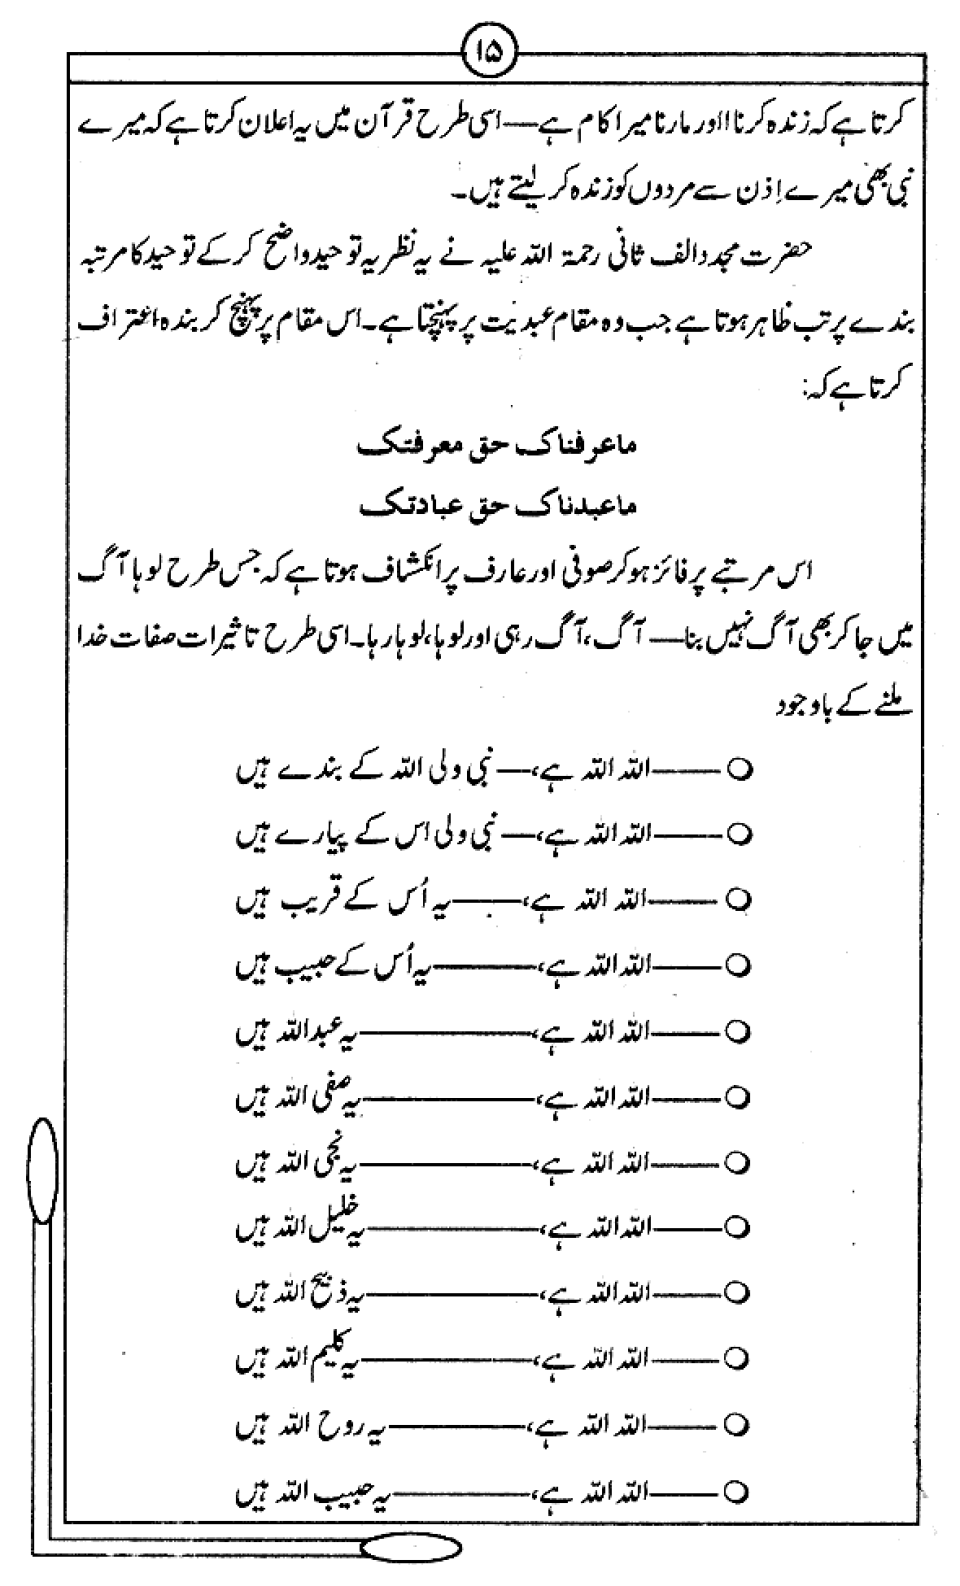 ۱۵
کرتا ہے کہ زندہ کرنا ااور مارنا میرا کام ہے — اسی طرح قرآن میں یہ اعلان کرتا ہے کہ میرے
نبی بھی میرے اِذن سے مردوں کو زندہ کر لیتے ہیں۔
حضرت مجدد الف ثانی رحمۃ اللہ علیہ نے یہ نظریہ توحید واضح کر کے توحید کا مرتبہ
بندے پر تب ظاہر ہوتا ہے جب وہ مقام عبدیت پر پہنچتا ہے۔ اس مقام پر پہنچ کر بندہ اعتراف
کرتا ہے کہ:
ماعرفناک حق معرفتک
ماعبدناک حق عبادتک
اس مرتبے پر فائز ہو کر صوفی اور عارف پر انکشاف ہوتا ہے کہ جس طرح لوہا آگ
میں جا کر بھی آگ نہیں بنا — آگ، آگ رہی اور لوہا، لوہا رہا۔ اسی طرح تاثیرات صفات خدا
ملنے کے باوجود
○ —— اللہ اللہ ہے، — نبی ولی اللہ کے بندے ہیں
○ —— اللہ اللہ ہے، — نبی ولی اس کے پیارے ہیں
○ —— اللہ اللہ ہے، —— یہ اُس کے قریب ہیں
○ —— اللہ اللہ ہے، —— یہ اُس کے حبیب ہیں
○ —— اللہ اللہ ہے، —— یہ عبداللہ ہیں
○ —— اللہ اللہ ہے، —— یہ صفی اللہ ہیں
○ —— اللہ اللہ ہے، —— یہ نجی اللہ ہیں
○ —— اللہ اللہ ہے، —— یہ خلیل اللہ ہیں
○ —— اللہ اللہ ہے، —— یہ ذبیح اللہ ہیں
○ —— اللہ اللہ ہے، —— یہ کلیم اللہ ہیں
○ —— اللہ اللہ ہے، —— یہ روح اللہ ہیں
○ —— اللہ اللہ ہے، —— یہ حبیب اللہ ہیں